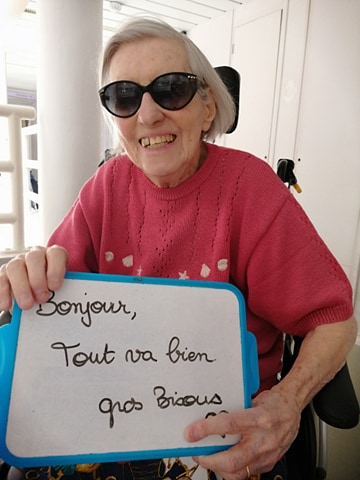 Bonjour,
Tout va bien
gros Bisous